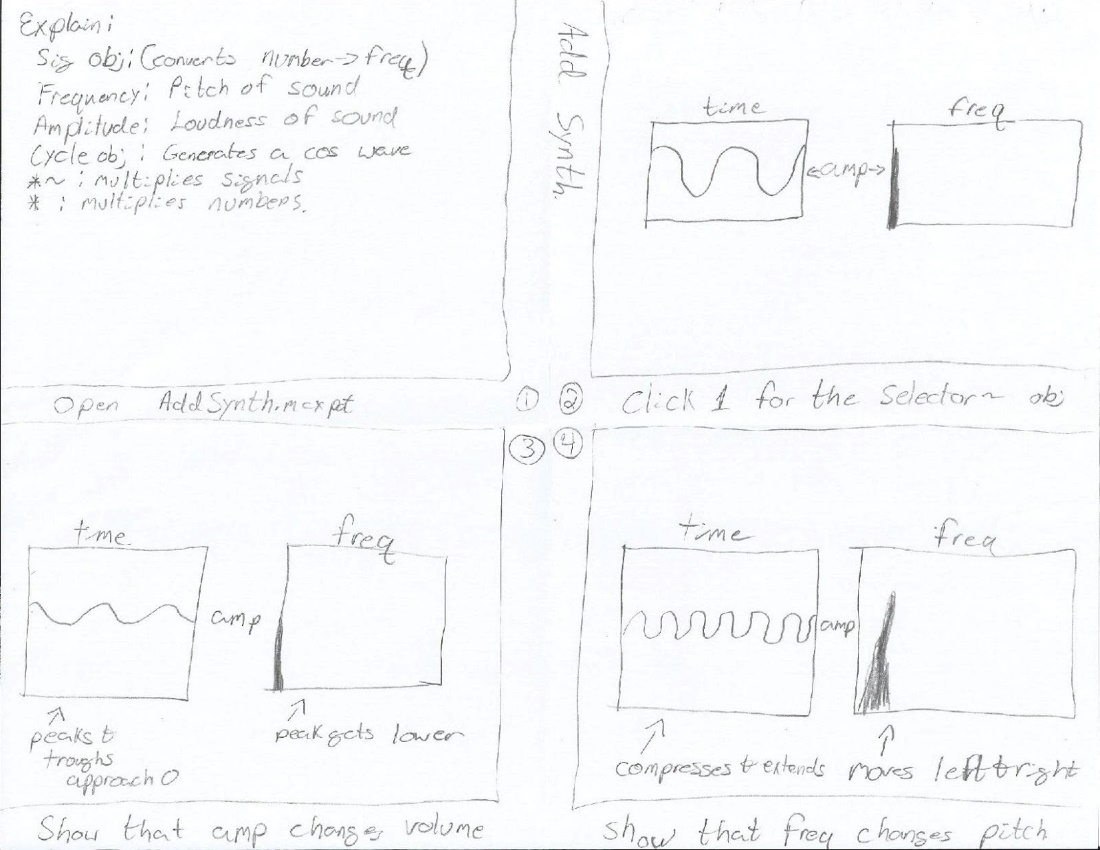 Explain:
Sig obj: (converts number -> freq)
Frequency: Pitch of sound
Amplitude: Loudness of sound
Cycle obj: Generates a cos wave
*~ : multiplies signals
* : multiplies numbers.
Open AddSynth.maxpat
①
Add Synth.
time
freq
<-amp->
② Click 1 for the Selector~ obj
③
time
freq
amp
peaks &
troughs
approach 0
peak gets lower
Show that amp changes volume
④
time
freq
amp
compresses & extends
moves left & right
Show that freq changes pitch